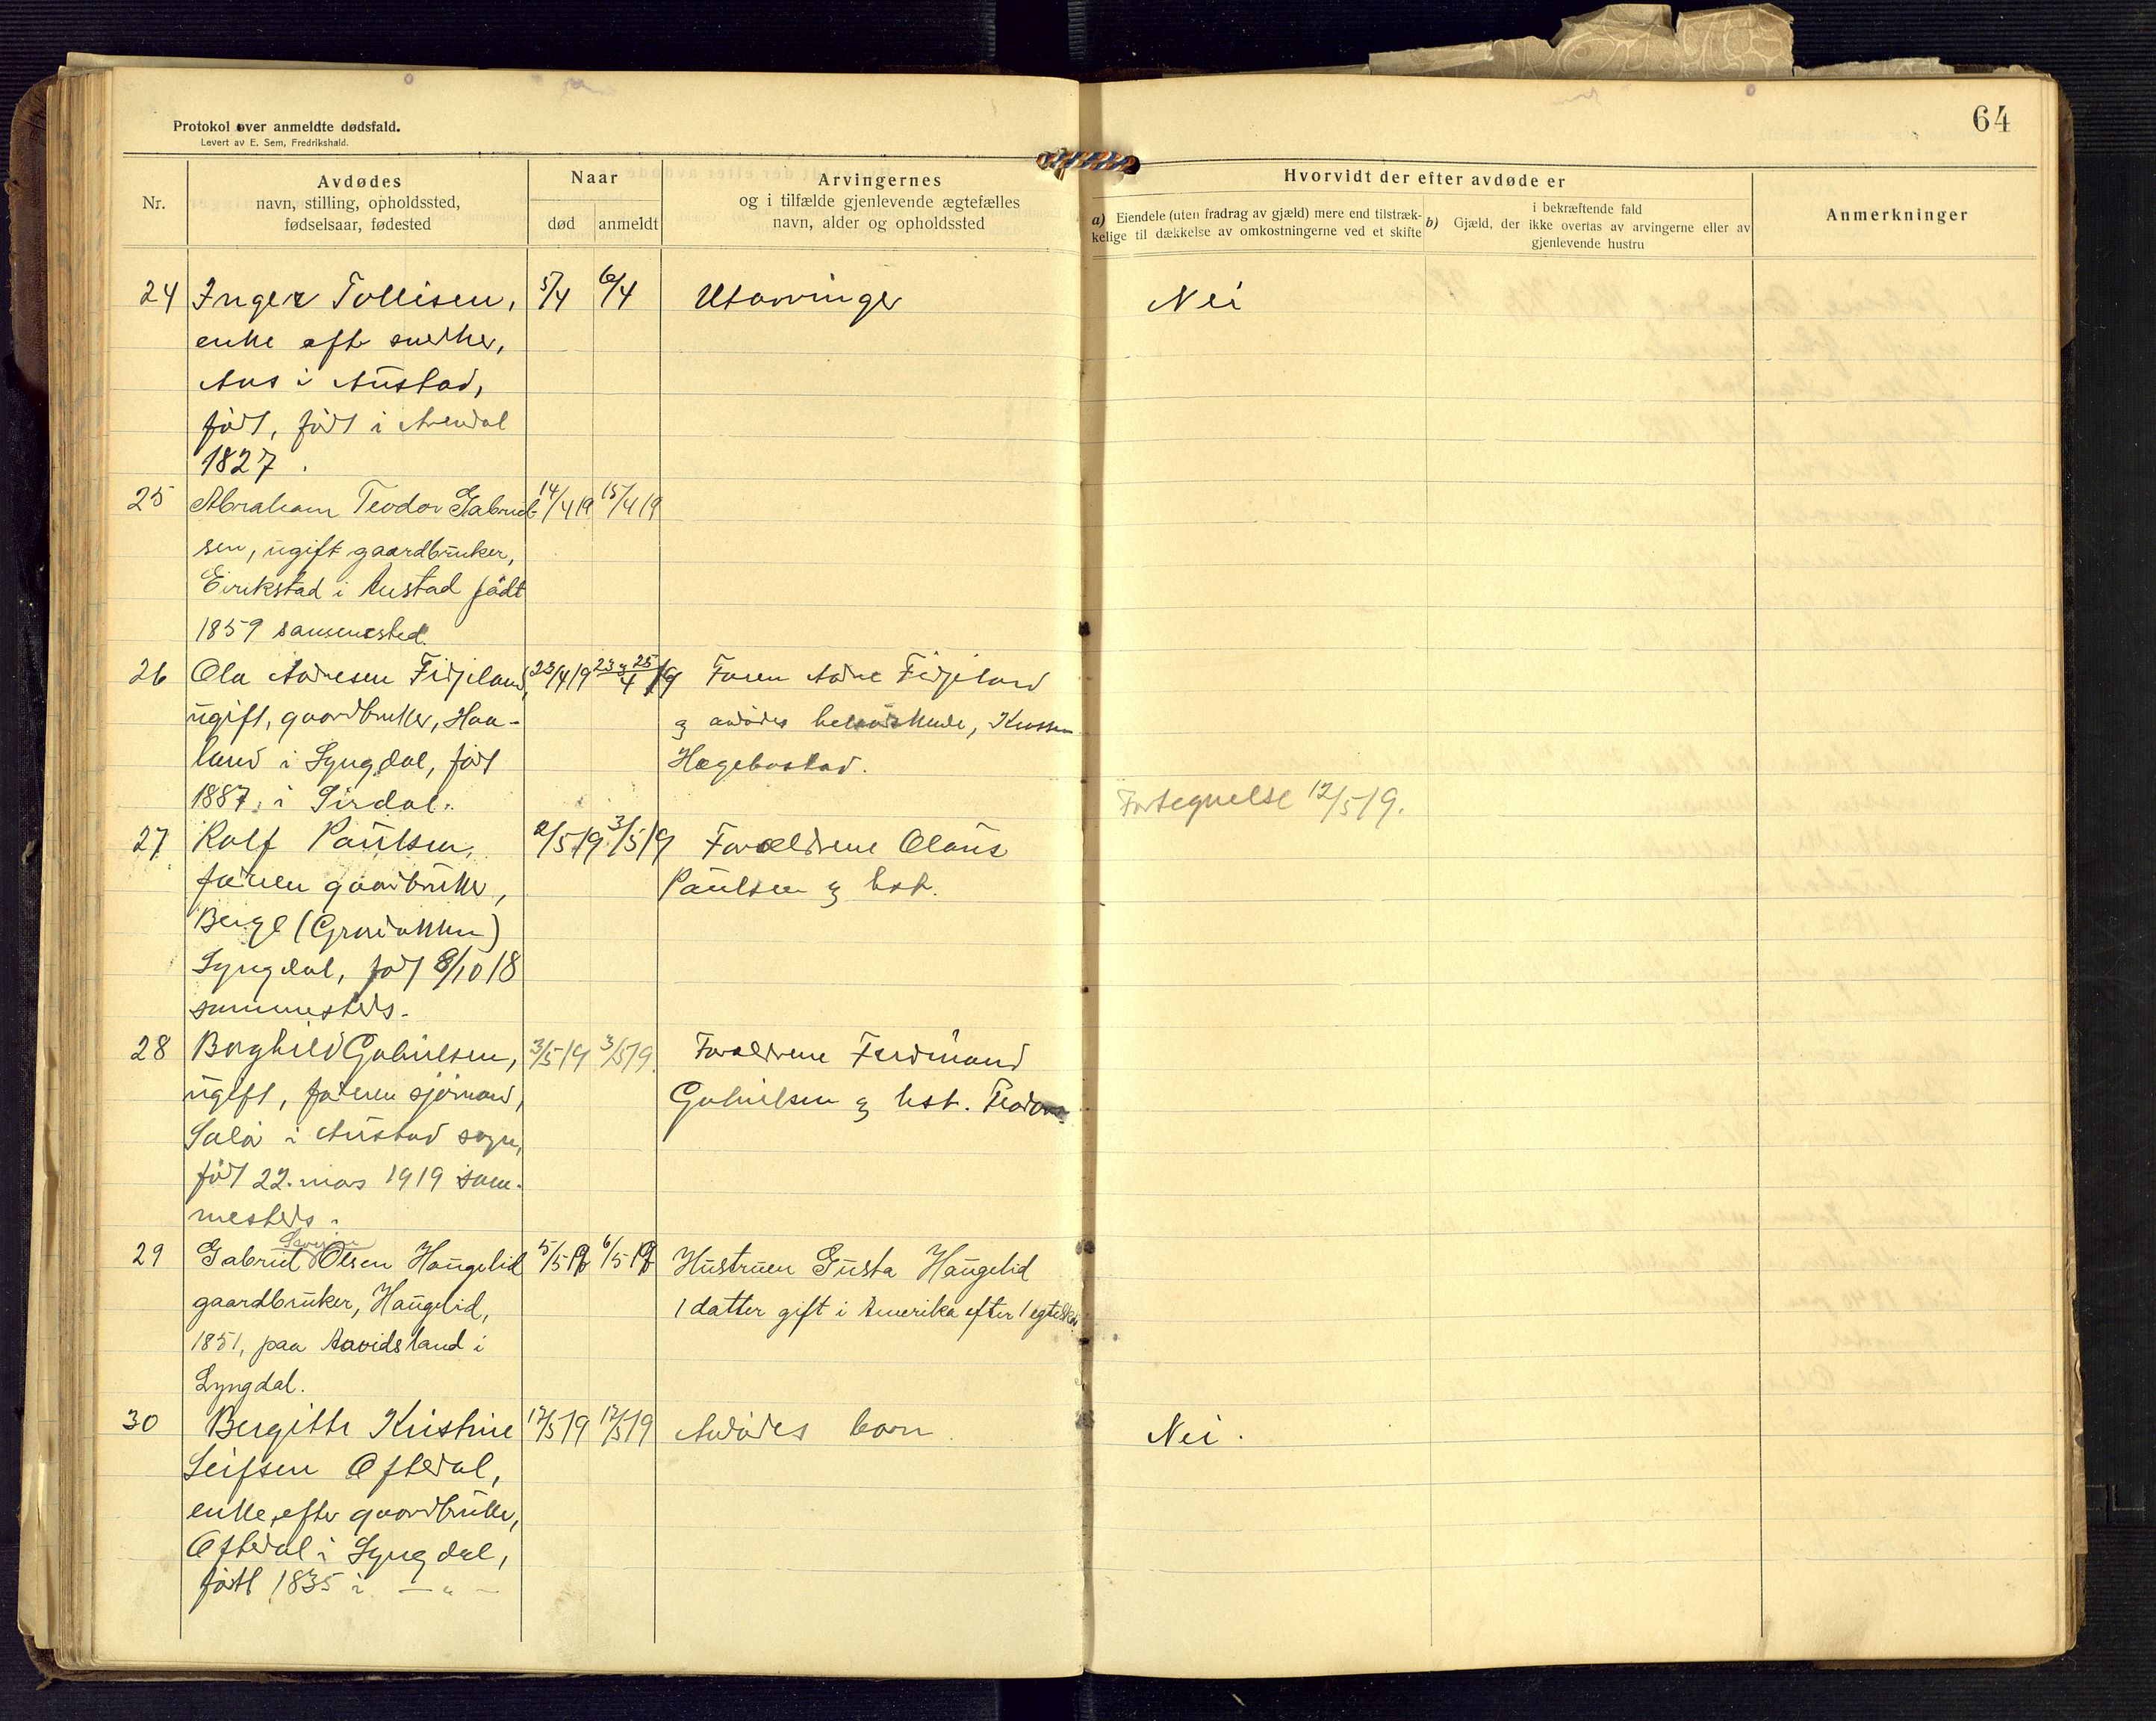 64
Protokol over anmeldte dødsfald.
Levert av E. Sem, Fredrikshald.
Nr.
Avdødes
navn, stilling, opholdssted,
fødselsaar, fødested
Naar
død
anmeldt
Arvingernes
og i tilfælde gjenlevende ægtefælles
navn, alder og opholdssted
Hvorvidt der efter avdøde er
a) Eiendele (uten fradrag av gjæld) mere end tilstræk-
kelige til dækkelse av omkostningerne ved et skifte
b) Gjæld, der i bekræftende fald
ikke overtas av arvingerne eller av
gjenlevende hustru
Anmerkninger
24 Inger Tollisen, 5/4 6/4 Utarvinger Nei
enke eft snekker,
Aas i Austad,
født, født i Arendal
1827.
25 Abraham Teodor Gabriel- 14/4 19 15/4 19
sen, ugift gaardbruker,
Eirikstad i Austad født
1859 sammested.
26 Ola Adnesen Fidjeland, 23/4 19 23 og 25/4 19 Faren Adne Fidjeland
ugift, gaardbruker, Haa- og avdødes
land i Lyngdal, født Hægebostad.
1887 i Sirdal.
Fortegnelse 12/5 19.
27 Rolf Paulsen, 2/5 19 3/5 19 Forældrene Olaus
faren gaardbruker, Paulsen og hst.
Berge
Lyngdal, født 8/10 18
sammesteds.
28 Borghild Gabrielsen, 3/5 19 3/5 19. Forældrene Ferdinand
ugift, faren sjømand, Gabrielsen og hst.
i Austad sogn,
født 22. mars 1919 sam-
mesteds.
29 Gabriel Olsen Haugelid 5/5 19 6/5 19 Hustruen Gusta Haugelid
gaardbruker, Haugelid, 1 datter gift i Amerika efter 1 egteskap
1851, paa Aavidsland i
Lyngdal.
30 Bergitte Kristine 17/5 19 17/5 19 Avdødes barn. Nei.
Leifsen Oftedal,
enke efter gaardbruker,
Oftedal i Lyngdal,
født 1835 i — " —